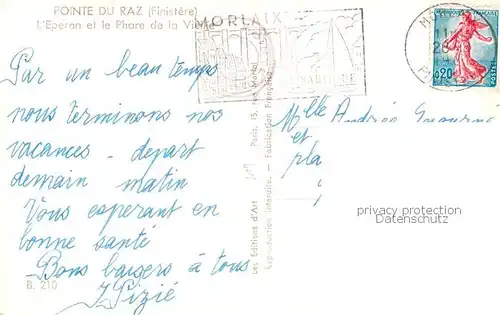 POINTE DU RAZ (Finistère)
L'Eperon et le Phare de la Vieille
MORLAIX
Par un beau temps
nous terminons nos
vacances - depart
demain matin
Vous esperant en
bonne santé
Bons baisers à tous
B. 210
Les Editions d'Art
Paris, 15, rue Martel
Reproduction interdite - Fabrication Française
0,20
POSTES
Mlle Andrée
et
privacy protection
Datenschutz